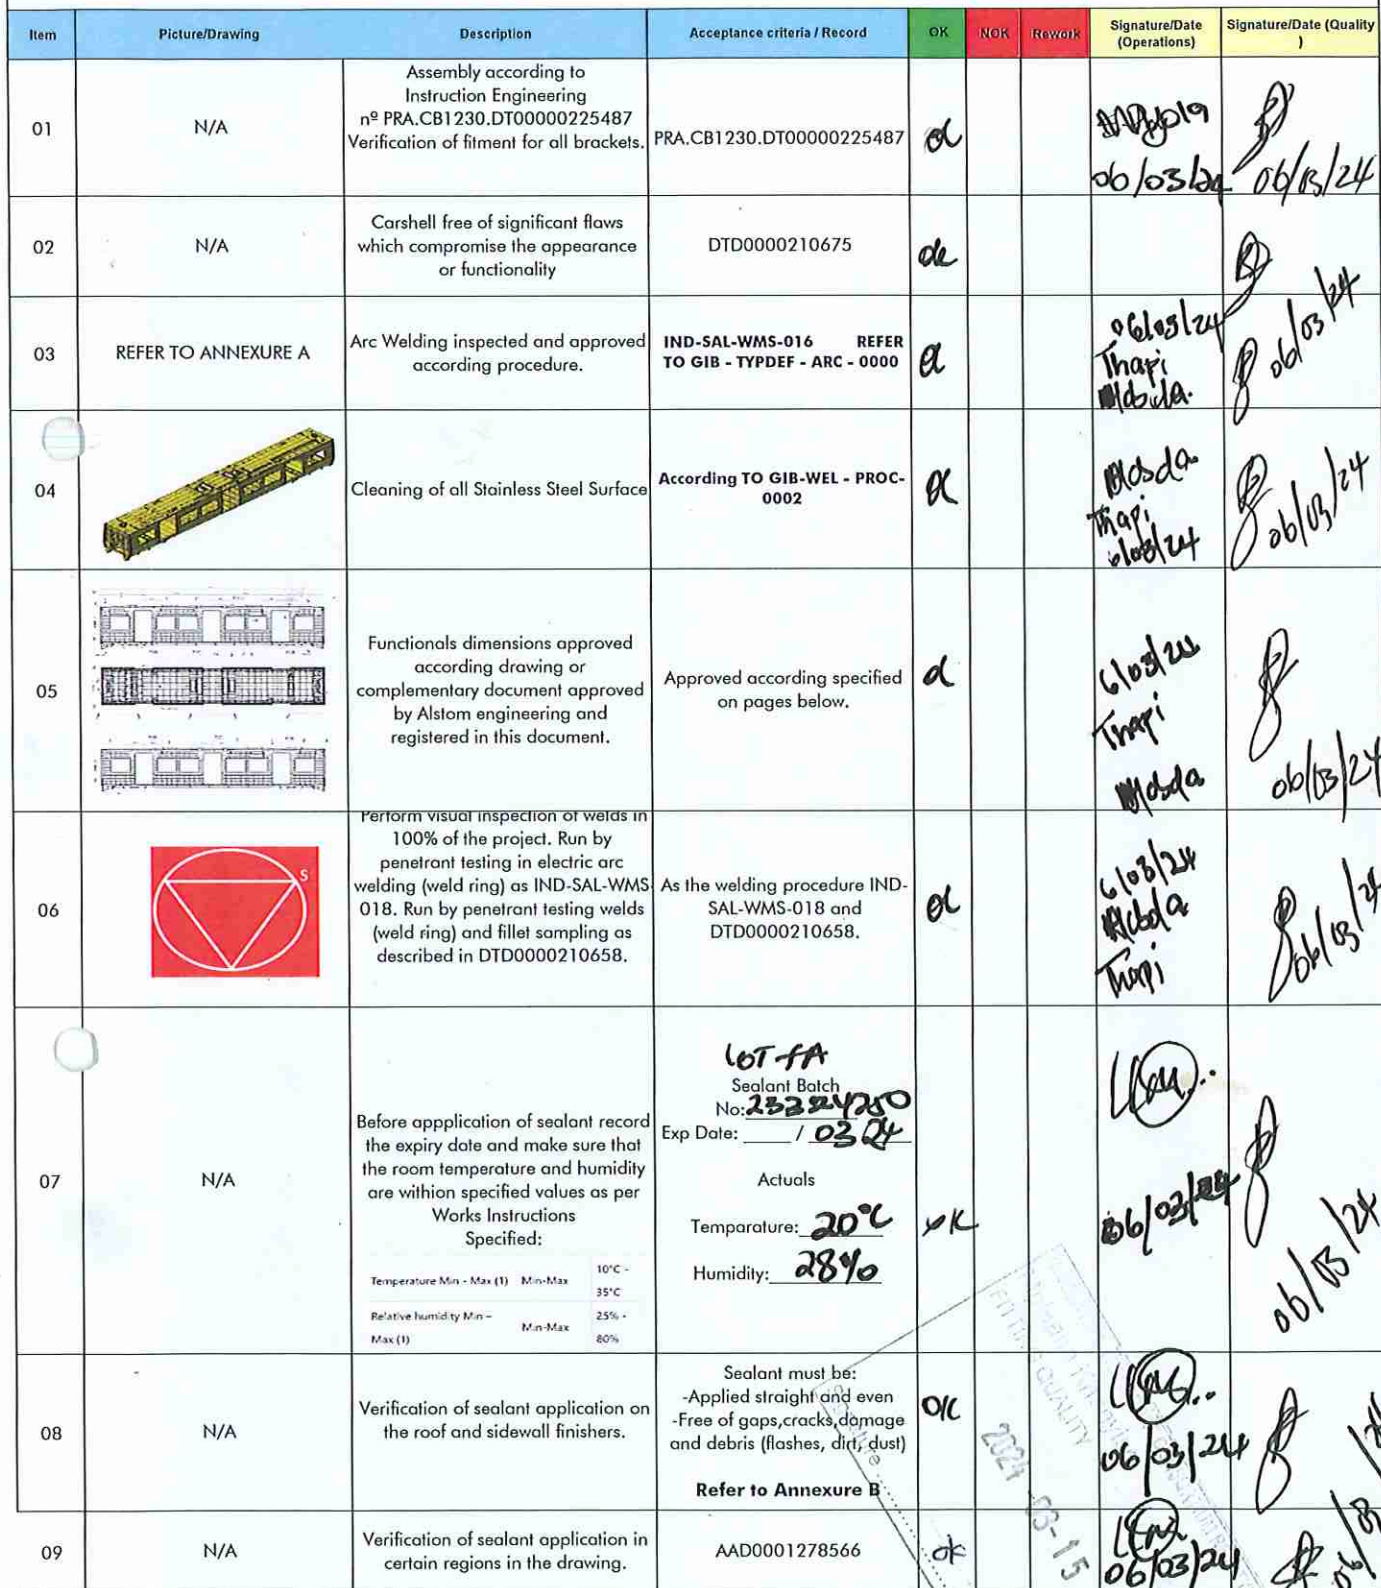 Item Picture/Drawing Description Acceptance criteria / Record OK NOK Rework Signature/Date (Operations) Signature/Date (Quality )
01
N/A
Assembly according to
Instruction Engineering
nº PRA.CB1230.DT00000225487
Verification of fitment for all brackets.
PRA.CB1230.DT00000225487
ok
06/03/24
06/03/24
02
N/A
Carshell free of significant flaws
which compromise the appearance
or functionality
DTD0000210675
ok
06/03/24
03
REFER TO ANNEXURE A
Arc Welding inspected and approved
according procedure.
IND-SAL-WMS-016 REFER
TO GIB - TYPDEF - ARC - 0000
ok
06/03/24
Thapi
06/03/24
04
Cleaning of all Stainless Steel Surface
According TO GIB-WEL - PROC-
0002
ok
Thapi
6/03/24
06/03/24
05
Functionals dimensions approved
according drawing or
complementary document approved
by Alstom engineering and
registered in this document.
Approved according specified
on pages below.
ok
6/03/24
Thapi
06/03/24
06
S
Perform visual inspection of welds in
100% of the project. Run by
penetrant testing in electric arc
welding (weld ring) as IND-SAL-WMS
018. Run by penetrant testing welds
(weld ring) and fillet sampling as
described in DTD0000210658.
As the welding procedure IND-
SAL-WMS-018 and
DTD0000210658.
ok
6/03/24
Thapi
06/03/24
07
N/A
Before appplication of sealant record
the expiry date and make sure that
the room temperature and humidity
are withion specified values as per
Works Instructions
Specified:
Temperature Min - Max (1) Min-Max 10°C - 35°C
Relative humidity Min – Max (1) Min-Max 25% - 80%
Sealant Batch
No:
Exp Date: ____ / 03 24
Actuals
Temparature: 20°C
Humidity: 28%
ok
06/03/24
06/03/24
08
N/A
Verification of sealant application on
the roof and sidewall finishers.
Sealant must be:
-Applied straight and even
-Free of gaps,cracks,damage
and debris (flashes, dirt, dust)
Refer to Annexure B
OK
06/03/24
09
N/A
Verification of sealant application in
certain regions in the drawing.
AAD0001278566
ok
06/03/24
QUALITY
2024-03-15